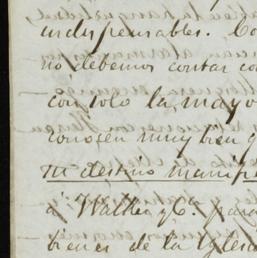 indispensables. Co
no debemos contar co
con solo la mayo
conosen muy bien q
m destino manifie
á Walker y Cª. para
bienes de la Iglesi